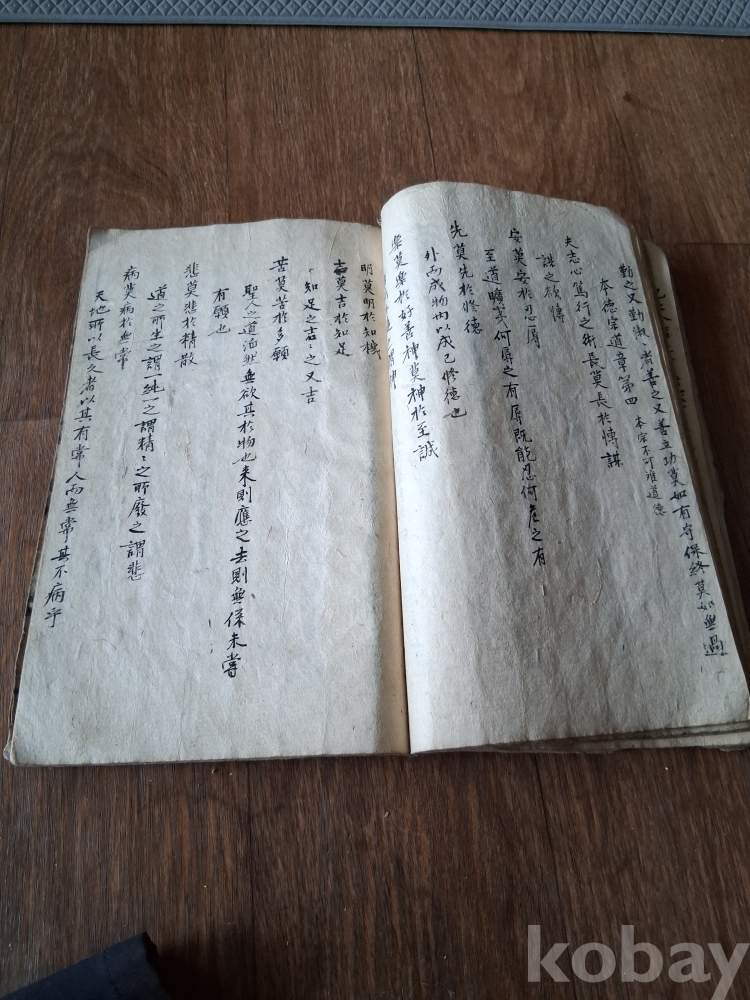 勤之又勤淑〻者善之又善立功莫如有奇保終莫如無過
本德宗道章第四 本宗不可離道德
夫志心篤行之術長莫長於博謀
謀之欲博
安莫安於忍辱
至道曠夷何辱之有辱既能忍何危之有
先莫先於修德
外而成物內以成己修德也
樂莫樂於好善神莫神於至誠
明莫明於知機
吉莫吉於知足
知足之吉〻之又吉
苦莫苦於多願
聖人之道泊然無欲其於物也來則應之去則無係未嘗
有願也
悲莫悲於精散
道之所生之謂一純一之謂精〻之所廢之謂悲
病莫病於無常
天地所以長久者以其有常人而無常其不病乎
kobay